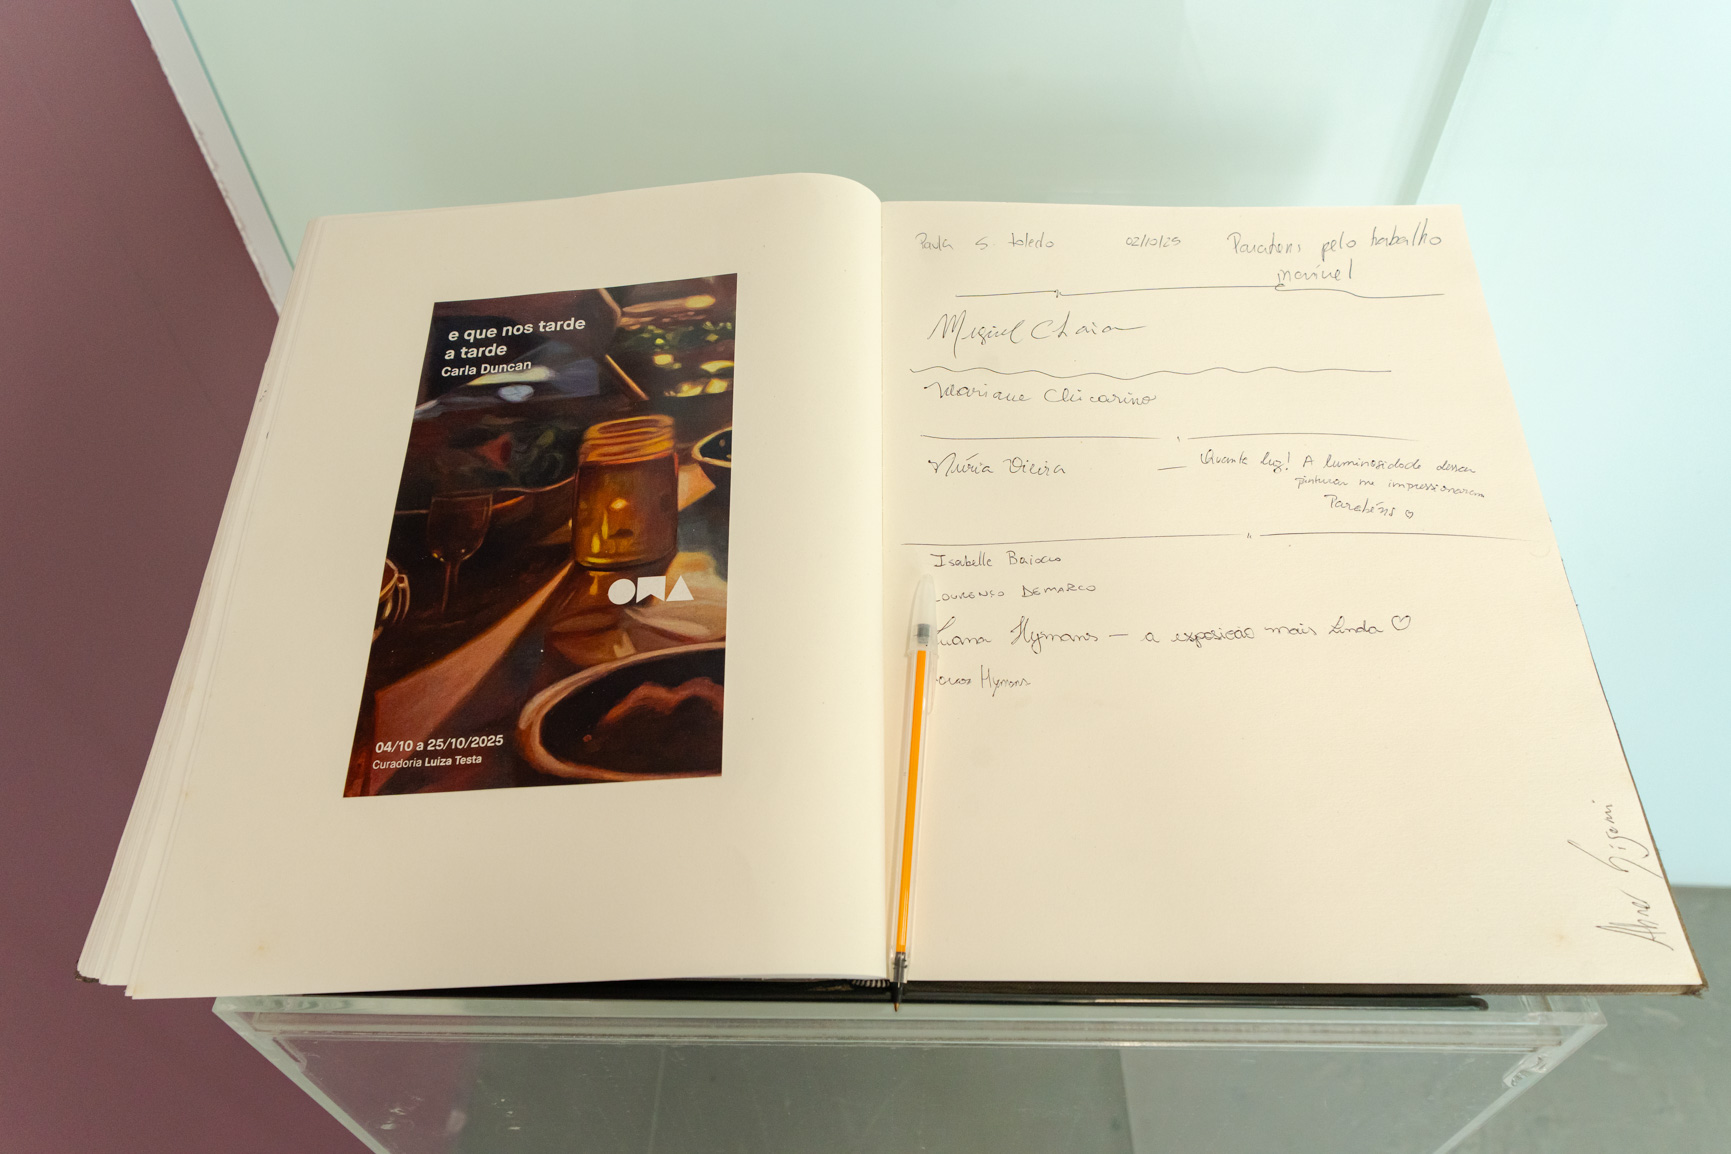 e que nos tarde
a tarde
Carla Duncan
OMA
04/10 a 25/10/2025
Curadoria Luiza Testa
Paula S. Toledo 02/10/25 Parabéns pelo trabalho
incrível
Miguel Chaia
Mariane Chicarino
Núria Vieira — Quanta luz! A luminosidade dessas
pinturas me impressionaram
Parabéns ♡
Isabelle Baiocco
LOURENÇO DEMARCO
Luana Hymans — a exposição mais linda ♡
Hymans